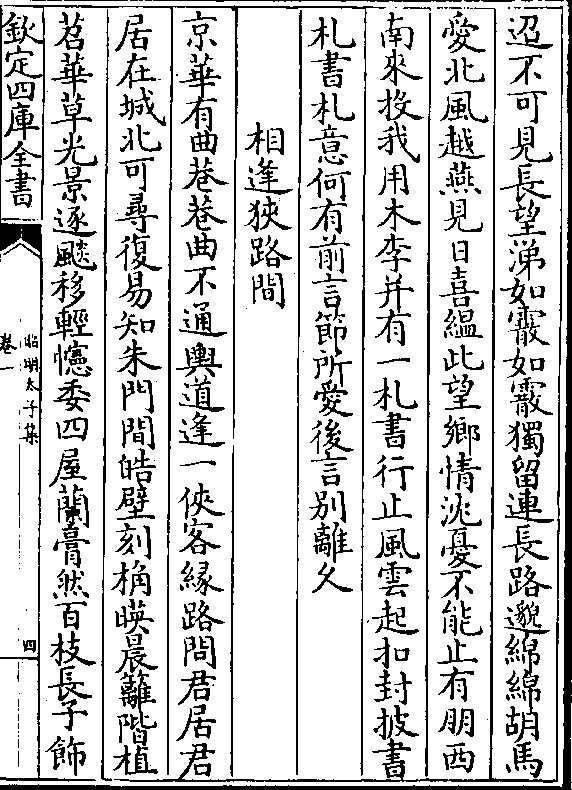 迢不可見長望涕如霰如霰獨留連長路邈綿綿胡馬
愛北風越燕見日喜緼此望鄉情沈憂不能止有朋西
南來投我用木李并有一札書行止風雲起扣封披書
札書札意何有前言節所愛後言別離久
相逢狹路間
京華有曲巷巷曲不通輿道逢一俠客緣路問君居君
居在城北可尋復易知朱門間皓壁刻桷暎晨籬階植
苕華草光景逐飈移輕幰委四屋蘭膏然百枝長子飾
欽定四庫全書
昭明太子集
卷一
四